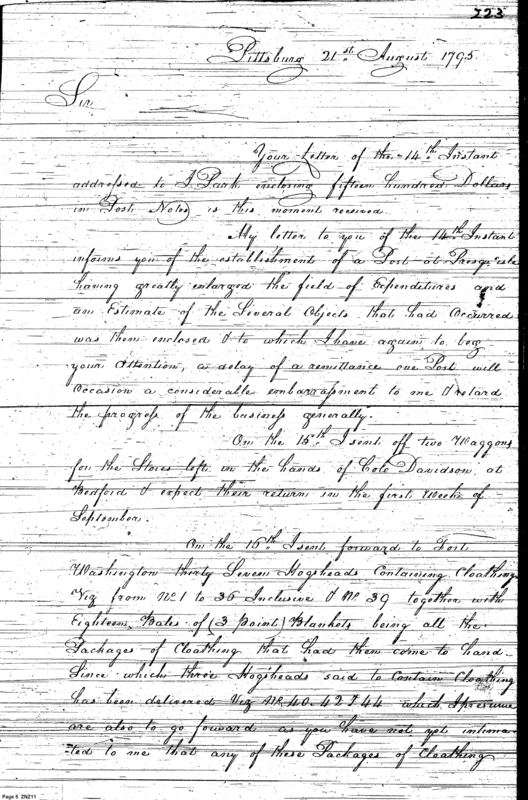 223
Pittsburg 21st August 1795
Sir
Your Letter of the 14th Instant
addressed to I Park enclosing fifteen hundred Dollars
in Post Notes is this moment received
My letter to you of the 14th Instant
informs you of the establishment of a Post at Presqu'isle
having greatly enlarged the field of Expenditures and
an Estimate of the Several Objects that had Occurred
was then enclosed & to which I have again to beg
your attention, a delay of a remittance one Post will
Occasion a considerable embarrassment to me & retard
the progress of the business generally.
On the 15th I sent off two Waggons
for the Stores left in the hands of Colo Davidson at
Bedford & expect their return in the first Week of
September.
On the 16th I sent forward to Fort
Washington thirty Seven Hogsheads Containing Cloathing
Viz from No 1 to 36 Inclusive & No 39 together with
Eighteen Bales of (3 point) Blankets being all the
Packages of Cloathing that had then come to hand
Since which three Hogsheads said to Contain Cloathing
has been delivered Viz No 40. 42 & 44 which I presume
are also to go forward as you have not yet intima
-ted to me that any of these Packages of Cloathing
Page 5 ZNZ11